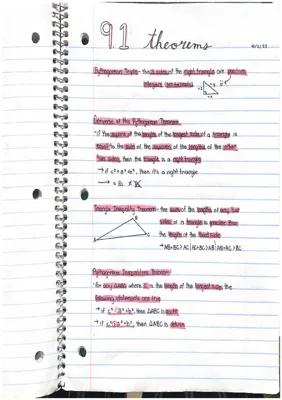 9.1 theorems
Pythagorean Triple - the 3 sides of the right triangle are positive
integers
Converse of the Pythagorean Theorem
if the square of the length of the longest side of a triangle is
equal to the sum of the squares of the lengths of the other
two sides, then the triangle is a right triangle
→ if c² = a² + b², then it's a right triangle
Triangle Inequality Theorem - the sum of the lengths of any two
sides of a triangle is greater than
the length of the third side
A B C
→ AB+BC>AC AC+BC>AB AB+AC>BC
Pythagorean Inequalities Theorem
for any △ABC where c is the length of the longest side, the
following statements are true
→ if c² < a² + b², then △ABC is acute
→ if c² > a² + b², then △ABC is obtuse